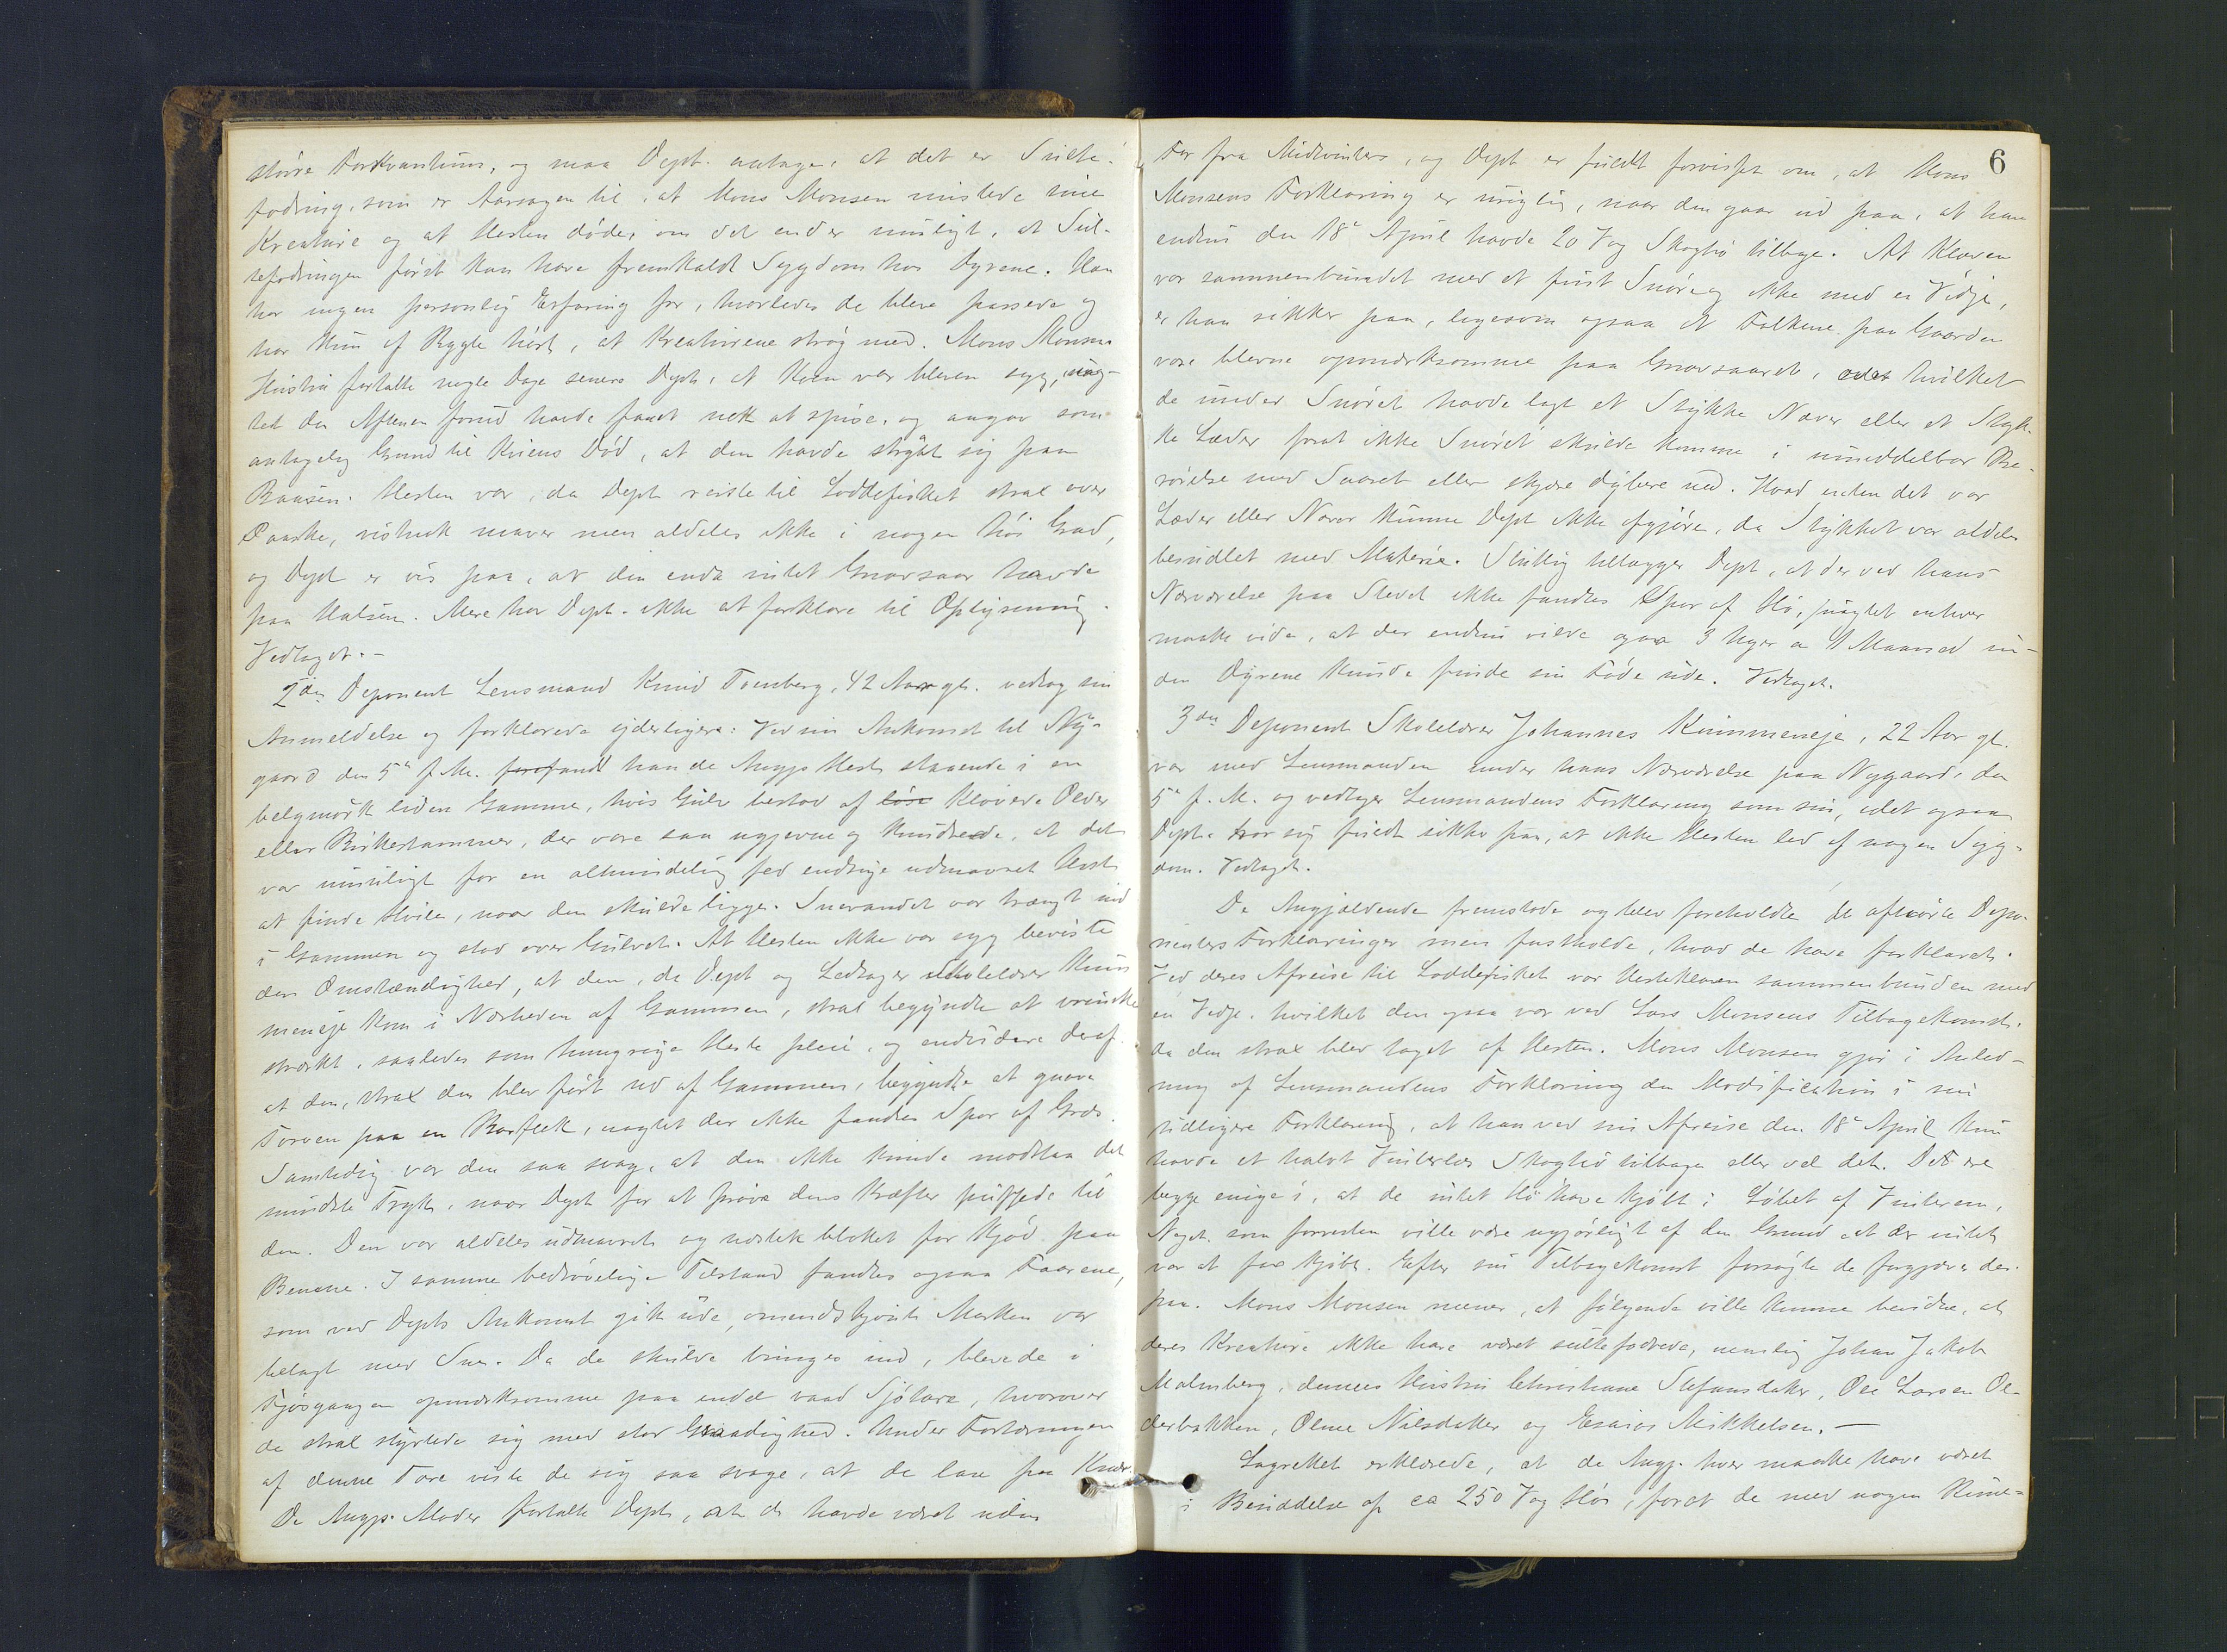 större Forkvantum, og maa Dept. antage, at det er Sulte-
fodring, som er Aarsagen til, at Mons Monsen mistede sine
Kreature og at Hesten døde, om det end er muligt, at Sul-
tefodringen først kan have fremkaldt Sygdom hos Dyrene. Han
har ingen personlig Erfaring for, hvorledes de bleve passede og
har kun af Rygte hørt, at Kreaturene strøg med. Mons Monsens
Hustru fortalte nogle Dage senere Dept., at Koen var bleven syg, uag-
tet den Aftenen forud havde faaet nok at spise, og angav som
antagelig Grund til Kviens Død, at den havde strygt sig paa
Baasen. Hesten var, da Dept reiste til Loddefisket strax over
Paaske, vistnok maver men aldeles ikke i nogen høi Grad,
og Dept er vis paa, at den enda intet Gnavsaar havde
paa Halsen. Mere har Dept. ikke at forklare til Oplysning.
Vedtaget.-
2den Deponent Lensmand Knud Trenberg, 42 Aar gl. vedtog sin
Anmeldelse og forklarede yderligere: Ved sin Ankomst til Ny-
gaard den 5te f. M. forefandt han de Angjs Hest staaende i en
belgmørk liden Gamme, hvis Gulv bestod af løse kløvede Older
eller Birkestammer, der vare saa ujevne og knudrede, at det
var umuligt for en almindelig fed endsige udmavret Hest
at finde Hvile, naar den skulde ligge. Snevandet var trængt ind
i Gammen og stod over Gulvet. At Hesten ikke var syg beviste
den Omstændighed, at den, da Dept og Ledsager Skolelærer Kuim
meneje kom i Nærheden af Gammen, strax begyndte at vrinske
stærkt, saaledes som hungrige Heste pleie, og endvidere deraf
at den, strax den blev ført ud af Gammen, begyndte at gnave
Torven paa en Barflek, uagtet der ikke fandtes Spor af Græs.
Samtidig var den saa svag, at den ikke kunde modstaa det
mindste Tryk, naar Dept for at prøve dens Kræfter puffede til
den. Den var aldeles udmavret og næsten blottet for Kjød paa
Benene. I samme bedrøvelige Tilstand fandtes ogsaa Faarene,
som ved Depts Ankomst gik ude, omendskjønt Marken var
belagt med Sne. Da de skulde bringes ind, bleve de i
Fjøsgangen opmærksomme paa endel vaad Sjøtare, hvorover
de strax styrtede sig med stor Graadighed. Under Fortæringen
af denne Tare viste de sig saa svage, at de laa paa Knæ.
De Angjs. Moder fortalte Dept, at de havde været uden
6
For fra Midvinters, og Dept er fuldt forvisset om, at Mons
Monsens Forklaring er urigtig, naar den gaar ud paa, at han
endnu den 18de April havde 20 Vog Skoghø tilbage. At Klaven
var sammenbundet med et tyndt Snøre og ikke med en Vidje,
er han sikker paa, ligesom ogsaa at Folkene paa Gaarden
vare blevne opmærksomme paa Gnavsaaret, hvilket
de under Snøret havde lagt et Stykke Næver eller et Styk-
ke Læder forat ikke Snøret skulde komme i umiddelbar Be-
rørelse med Saaret eller skjære dybere ned. Hvad enten det var
Læder eller Næver kunne Dept ikke afgjøre, da Stykket var aldeles
besudlet med Materie. Sluttig tillægger Dept, at der ved hans
Nærværelse paa Stedet ikke fandtes Spor af Hø, uagtet enhver
maatte vide, at der endnu vilde gaa 3 Uger a 1 Maaned in-
den Dyrene kunde finde sin Føde ude. Vedtaget.
3die Deponent Skolelærer Johannes Kuimmeneje, 22 Aar gl.
var med Lensmanden under hans Nærværelse paa Nygaard den
5te f. M. og vedtager Lensmandens Forklaring som sin, idet ogsaa
Dept. tror sig fuldt sikker paa, at ikke Hesten led af nogen Syg-
dom. Vedtaget.
De Angjældende fremstode og blev foreholdte de afhørte Depo-
nenters Forklaringer men fastholde, hvad de have forklaret.
Ved deres Afreise til Loddefisket var Hesteklaven sammenbunden med
en Vidje, hvilket den ogsaa var ved Lars Monsens Tilbagekomst,
da den strax blev taget af Hesten. Mons Monsen gjør i Anled-
ning af Lensmandens Forklaring den Modification i sin
tidligere Forklaring, at han ved sin Afreise den 18de April kun
havde et halvt Vinterlæs Skoghø tilbage eller vel det. De ere
begge enige i, at de intet Hø have kjøbt i Løbet af Vinteren,
Noget, som forresten ville være ugjørligt af den Grund at der intet
var at faa kjøbt. Efter sin Tilbagekomst forsøgte de forgjæves der-
paa. Mons Monsen mener, at følgende ville kunne bevidne, at
deres Kreature ikke have været sultefodrede, nemlig Johan Jakob
Malmberg, dennes Hustru Christiane Stefansdatter, Ole Larsen Ol-
derbakken, Oline Nilsdatter og Esaias Mikkelsen. —
Lagrettet erklærede, at de Angj. hver maatte have været
i Besiddelse af ca 250 Vog Hø, forat de med nogen Rime-